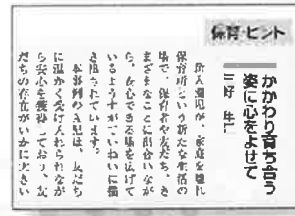 保育・ヒント
かかわり育ち合う
姿に心をよせて
三好
新入園児が、家庭を離れ
保育所という新たな生活の
場で、保育者や友だち、さ
まざまなことに出合いなが
ら、安心できる場を広げて
いるようすがていねいに描
き出されています。
本事例のA児は、友だち
に温かく受け入れられなが
ら安心を獲得しており、友
だちの存在がいかに大きい